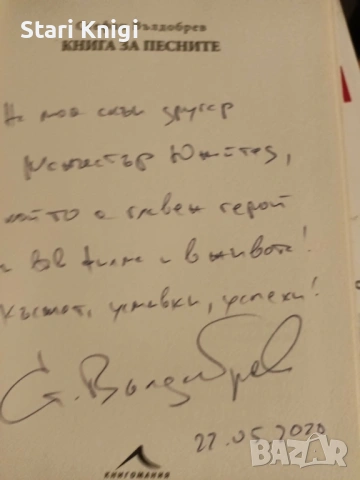 Stari Knigi
Стефан Вълдобрев
КНИГА ЗА ПЕСНИТЕ
На моя скъп другар
Манчестър Юнайтед,
който е главен герой
и във филма и в живота!
Късмет, усмивки, успехи!
Ст. Вълдобрев
22.05.2020
КНИГОМАНИЯ
BAZAR